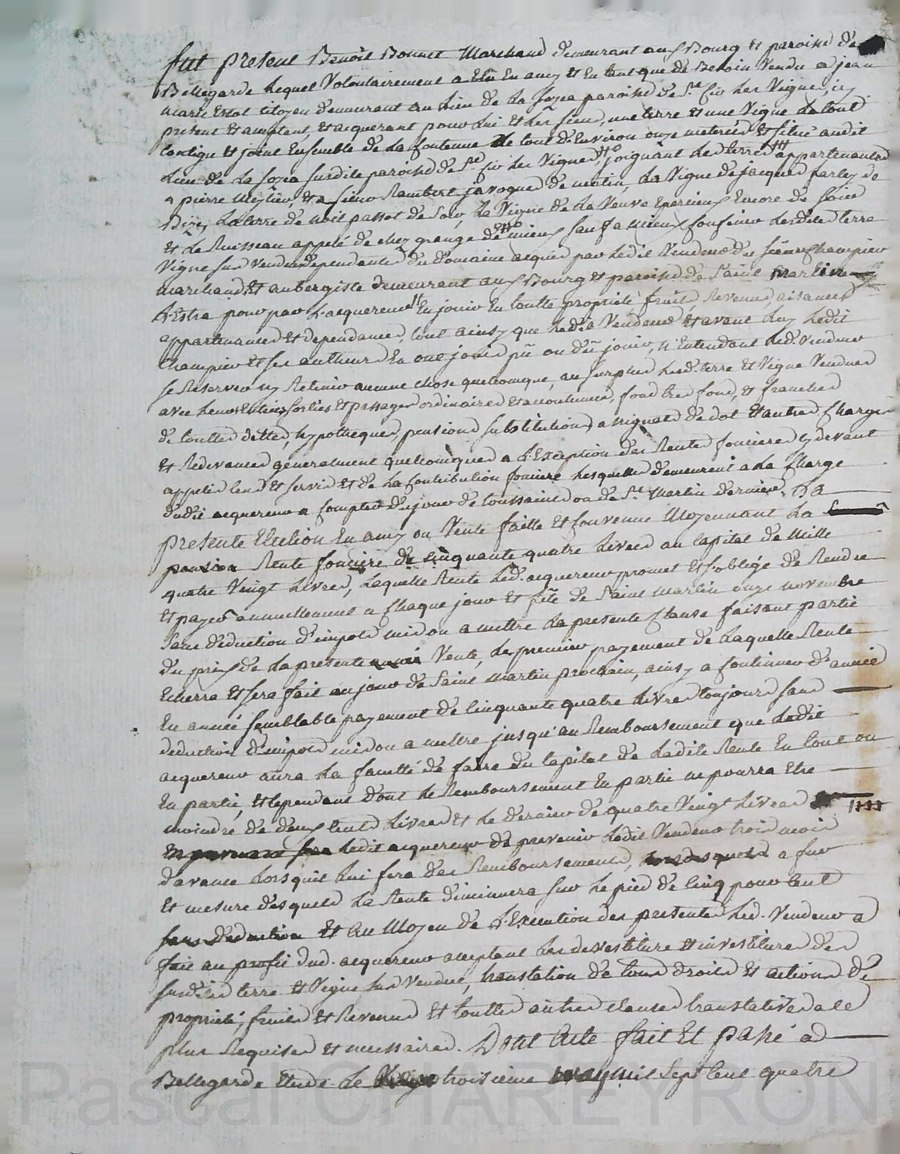 fut present Benoit Bonnet Marchand demeurant aux Bourg et paroise de
Bellegarde Lequel Volontairement a En anz et En tant que de Besoin Vendu a jean
marie citoyen demeurant au Lieu de La paroise de St Les Vignes, icy
present et acceptant, et acquerant pour Lui et Les siens, une terre et une Vigne Le tout
contigue et joint Ensemble de La Contenue de tout d'Environ onze meterées et situé audit
Lieu de La susdite paroise de St Les Vignes joignant Les terres appartenantes
a pierre et a sieur Rambert javogue de La Vigne de jacques
La terre de La Vigne de La Veuve Encore de soire
et Le Ruisseau appelé de chez grange sauf a mieux confiner Lesdites terre
Vigne sus Vendues dependantes du domaine acquis par Ledit Vendeur du sieur Champier
marchand et aubergiste demeurant aux Bourg et paroise de Saint Martin
L'Estra pour par L'acquereur En jouir En toutte proprieté fruits Revenus aisances
appartenances et dependances, tout ainsy que Ledit Vendeur et avant Luy Ledit
Champier et ses autheurs En ont joui pû ou dû jouir, n'Entendant Led. Vendeur
se Reserver ny Retenir aucune chose quelconque, au surplus Lesd. terre et Vigne Vendues
avec Leurs Entrées sorties et passages ordinaires et accoutumés, fond tres fond, et franches
de touttes dettes, hypotheques, pensions substitutions assignats de dot et autres Charges
et Redevances generalement quelconques a L'Exception des Rentes foncieres cy devant
appelés Cens et servis et de La Contribution fonciere Lesquelles demeurent a La Charge
dudit acquereur a Compter du jour de toussaint ou de St Martin dernier. La
presente Election En amy ou Vente faitte et Convenue Moyennant La
pension Rente fonciere de cinquante quatre Livres au capital de Mille
quatre Vingt Livres, Laquelle Rente Led. acquereur promet et s'oblige de Rendre
et payer annuellement a Chaque jour et fête de Saint Martin onze novembre
sans déduction d'impots mis ou a mettre La presente Clause faisant partie
du prix de La presente Vente, Le premier payement de Laquelle Rente
Echerra et sera fait au jour de Saint Martin prochain, ainsy a Continuer d'année
En année semblable payement de Cinquante quatre Livres toujours sans
deduction d'impots mis ou a mettre jusqu'au Remboursement que Ledit
acquereur aura La faculté de faire du Capital de Ladite Rente En tout ou
En partie, et Cependant dont Le Remboursement En partie ne pourra Etre
moindre de deux Cents Livres et Le dernier de quatre Vingt Livres
Ledit acquereur de prevenir Ledit Vendeur trois mois
d'avance Lorsquil Lui fera des Remboursements, a fur
et mesure desquels La Rente diminuera sur Le pied de Cinq pour Cent
sans deduction et Au Moyen de L'Execution des presentes Led. Vendeur a
fait au profit dud. acquereur acceptant Les devestiture et investiture des
susdites terre et Vigne sus Vendues, translation de tous droits et actions de
proprieté, fruits et Revenus et touttes autres clauses translatives a ce
plus Requises et necessaires. Dont Acte fait Et passé a
Bellegarde Etude Le troisieme may mil sept Cent quatre
Pascal CHAREYRON